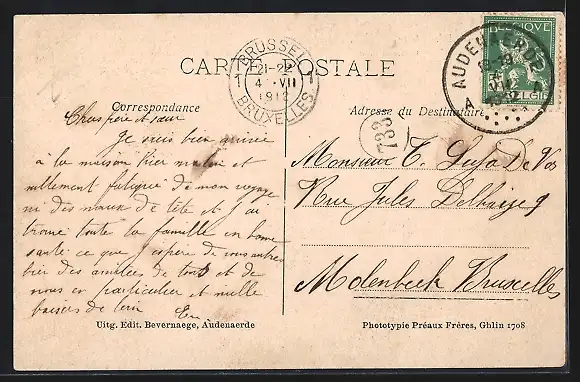 CARTE POSTALE
BRUSSEL
21-22
4 VII
1912
BRUXELLES
1 1
BELGIQUE
AUDENARDE
A
Correspondance
Adresse du Destinataire
Cher père et sœur
Je suis bien arrivée
à la maison hier matin et
nullement fatigué de mon voyage
ni des maux de tête et j'ai
trouvé toute la famille en bonne
santé ce que j'espère de vous autres
bien des amitiées de tous et de
nous en particulier et mille
baisers de loin
Monsieur T. De Vos
Rue Jules Delhaize 9
Molenbeek Bruxelles
Uitg. Edit. Bevernaege, Audenaerde
Phototypie Préaux Frères, Ghlin 1708